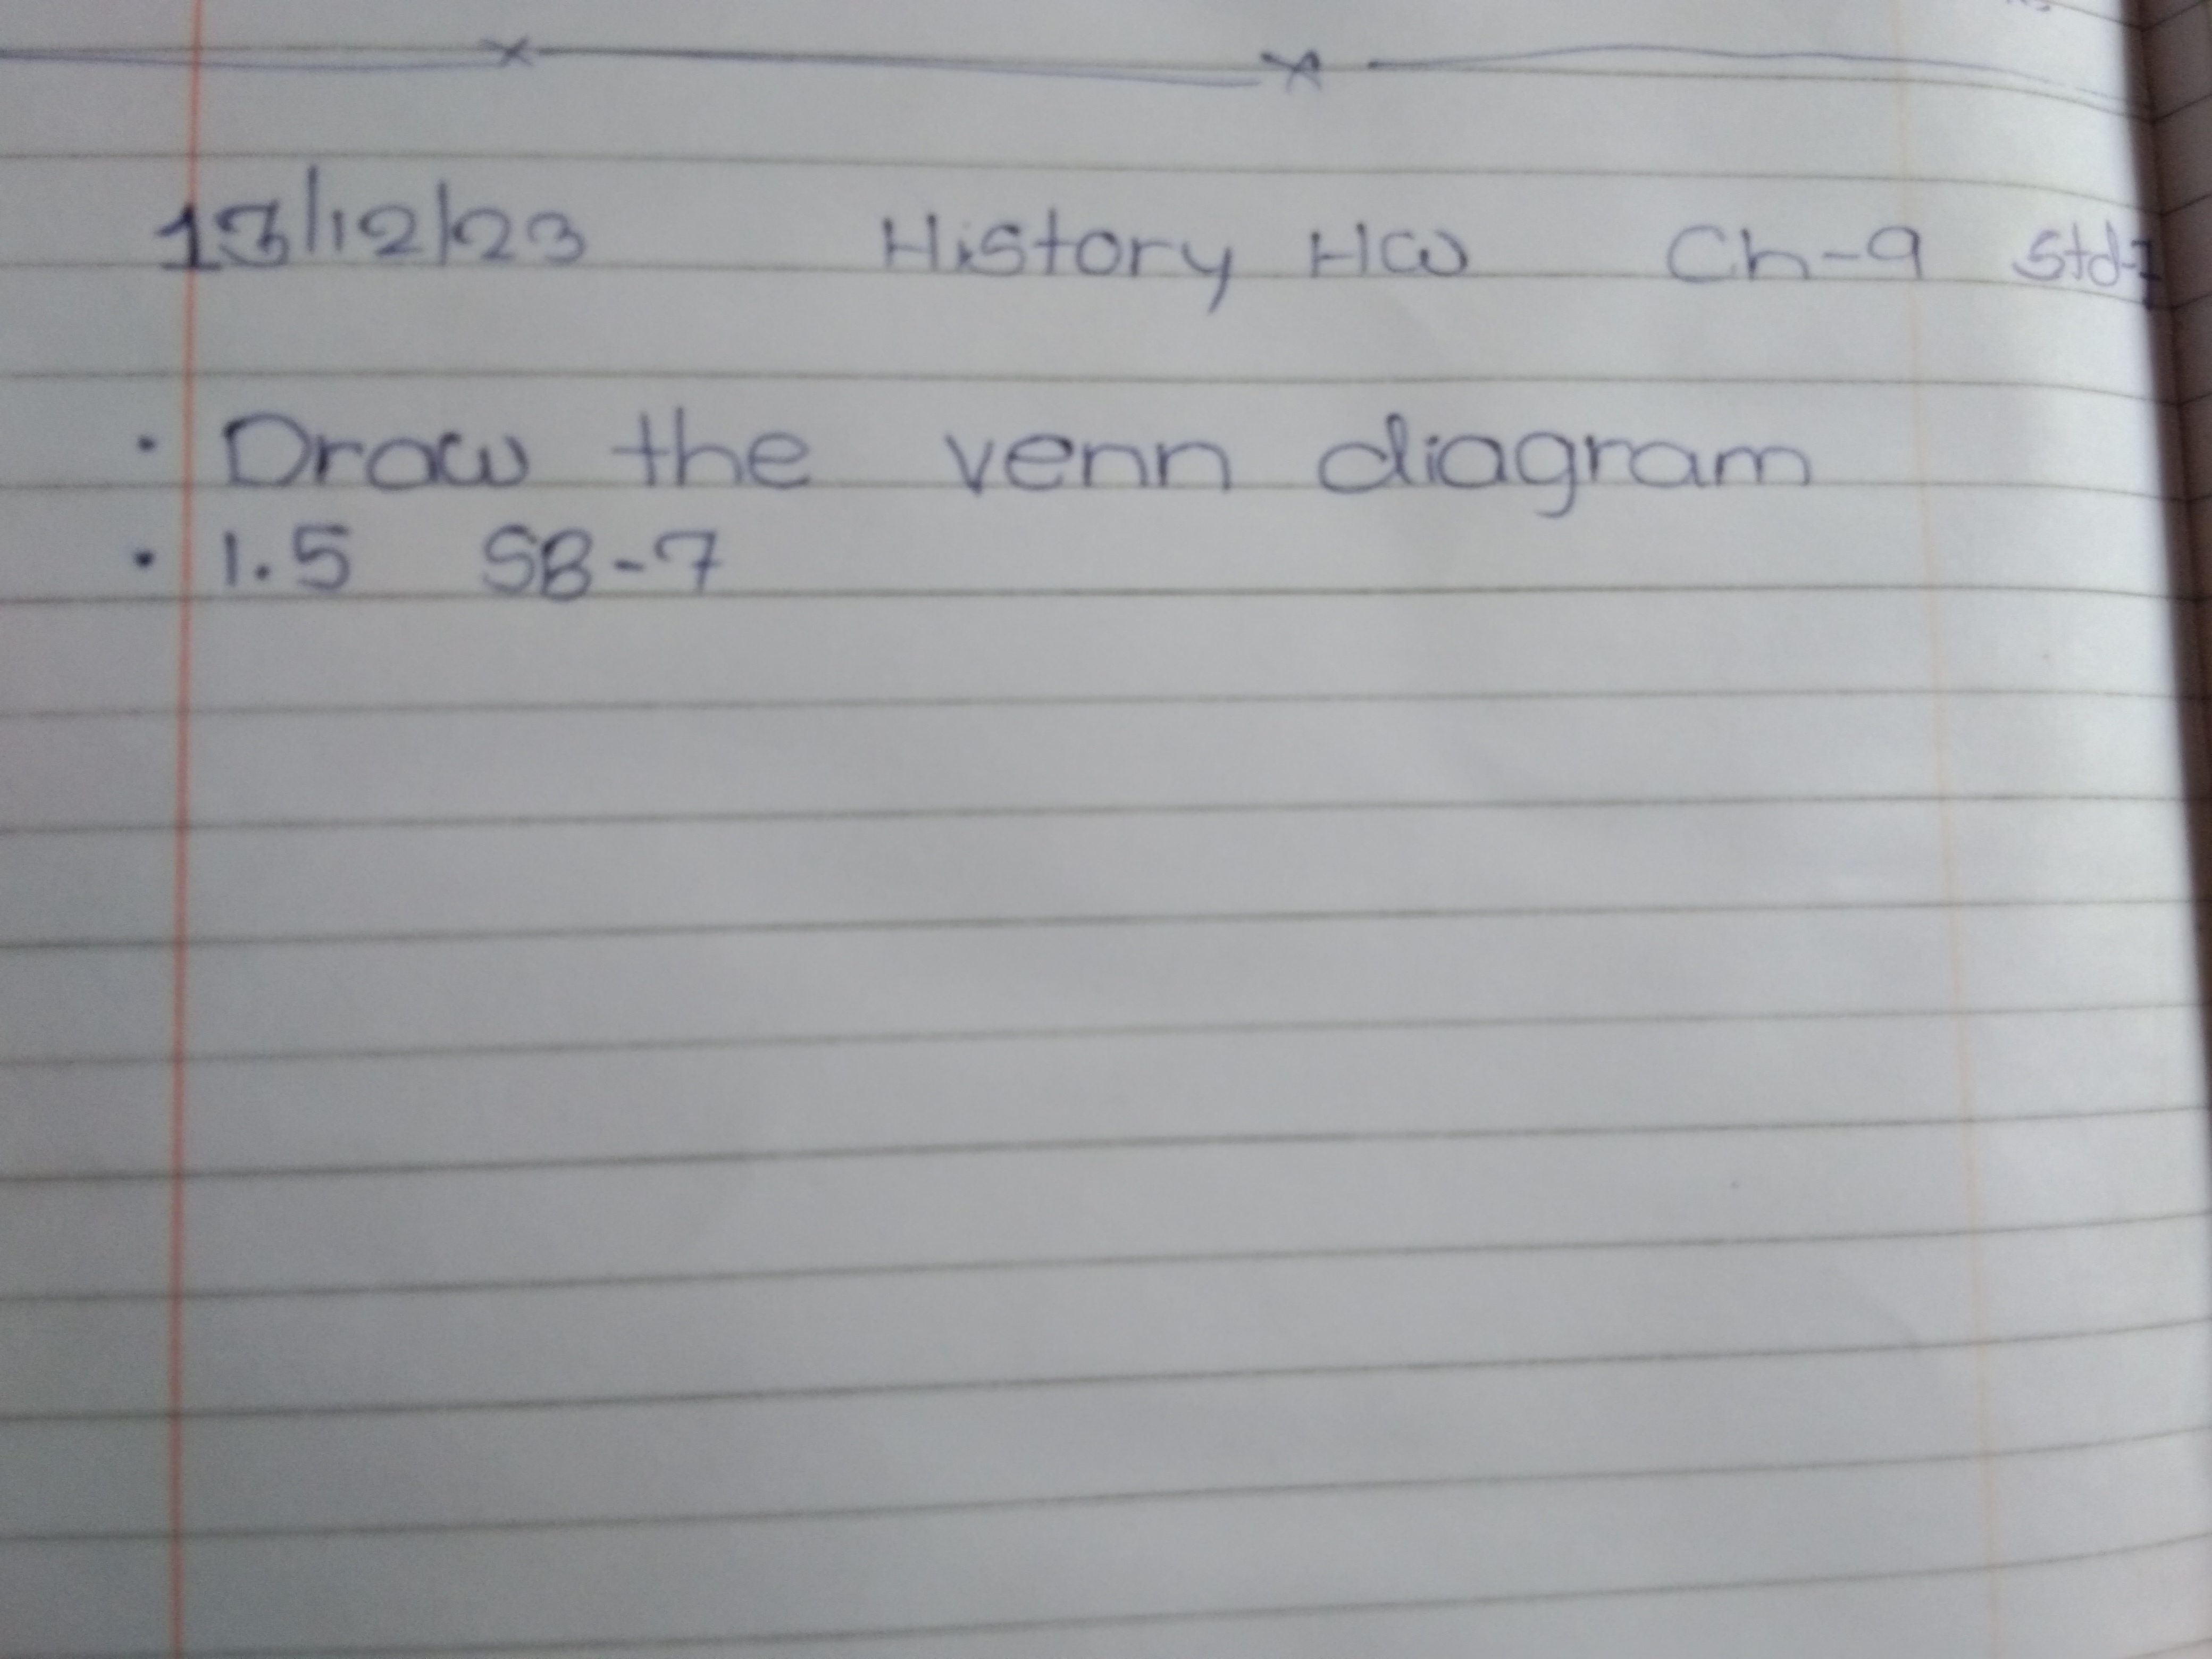 13/12/23 History HW Ch-9 Std-7
• Draw the venn diagram
• 1.5 SB-7